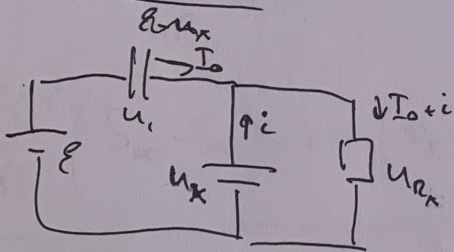 ℰ-Uₓ
I₀
U₁
↑i
↓I₀+i
ℰ
Uₓ
U_Rₓ